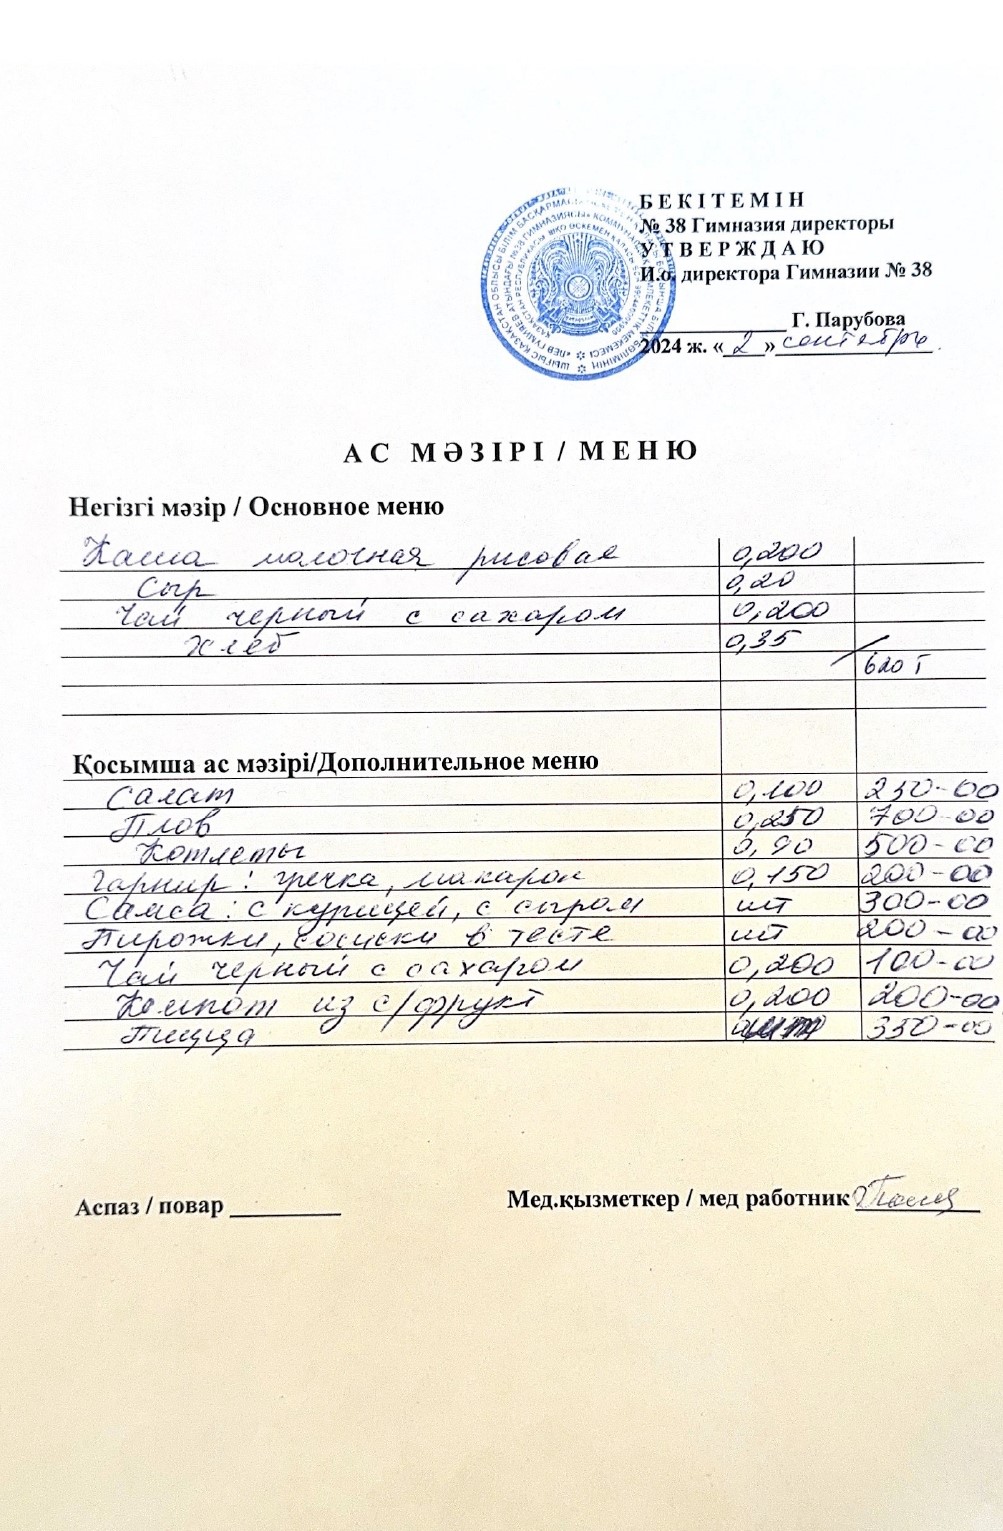 БЕКІТЕМІН
№ 38 Гимназия директоры
УТВЕРЖДАЮ
И.о. директора Гимназии № 38
Г. Парубова
2024 ж. «2» сентябрь
АС МӘЗІРІ / МЕНЮ
Негізгі мәзір / Основное меню
Каша молочная рисовая 0,200
Сыр 0,20
Чай черный с сахаром 0,200
Хлеб 0,35
620 т
Қосымша ас мәзірі/Дополнительное меню
Салат 0,100 250-00
Плов 0,250 700-00
Котлеты 0,90 500-00
Гарнир: гречка, макарон 0,150 200-00
Самса: с курицей, с сыром шт 300-00
Пирожки, сосиски в тесте шт 200-00
Чай черный с сахаром 0,200 100-00
Компот из с/фрукт 0,200 200-00
Пицца шт 350-00
Аспаз / повар
Мед.қызметкер / мед работник